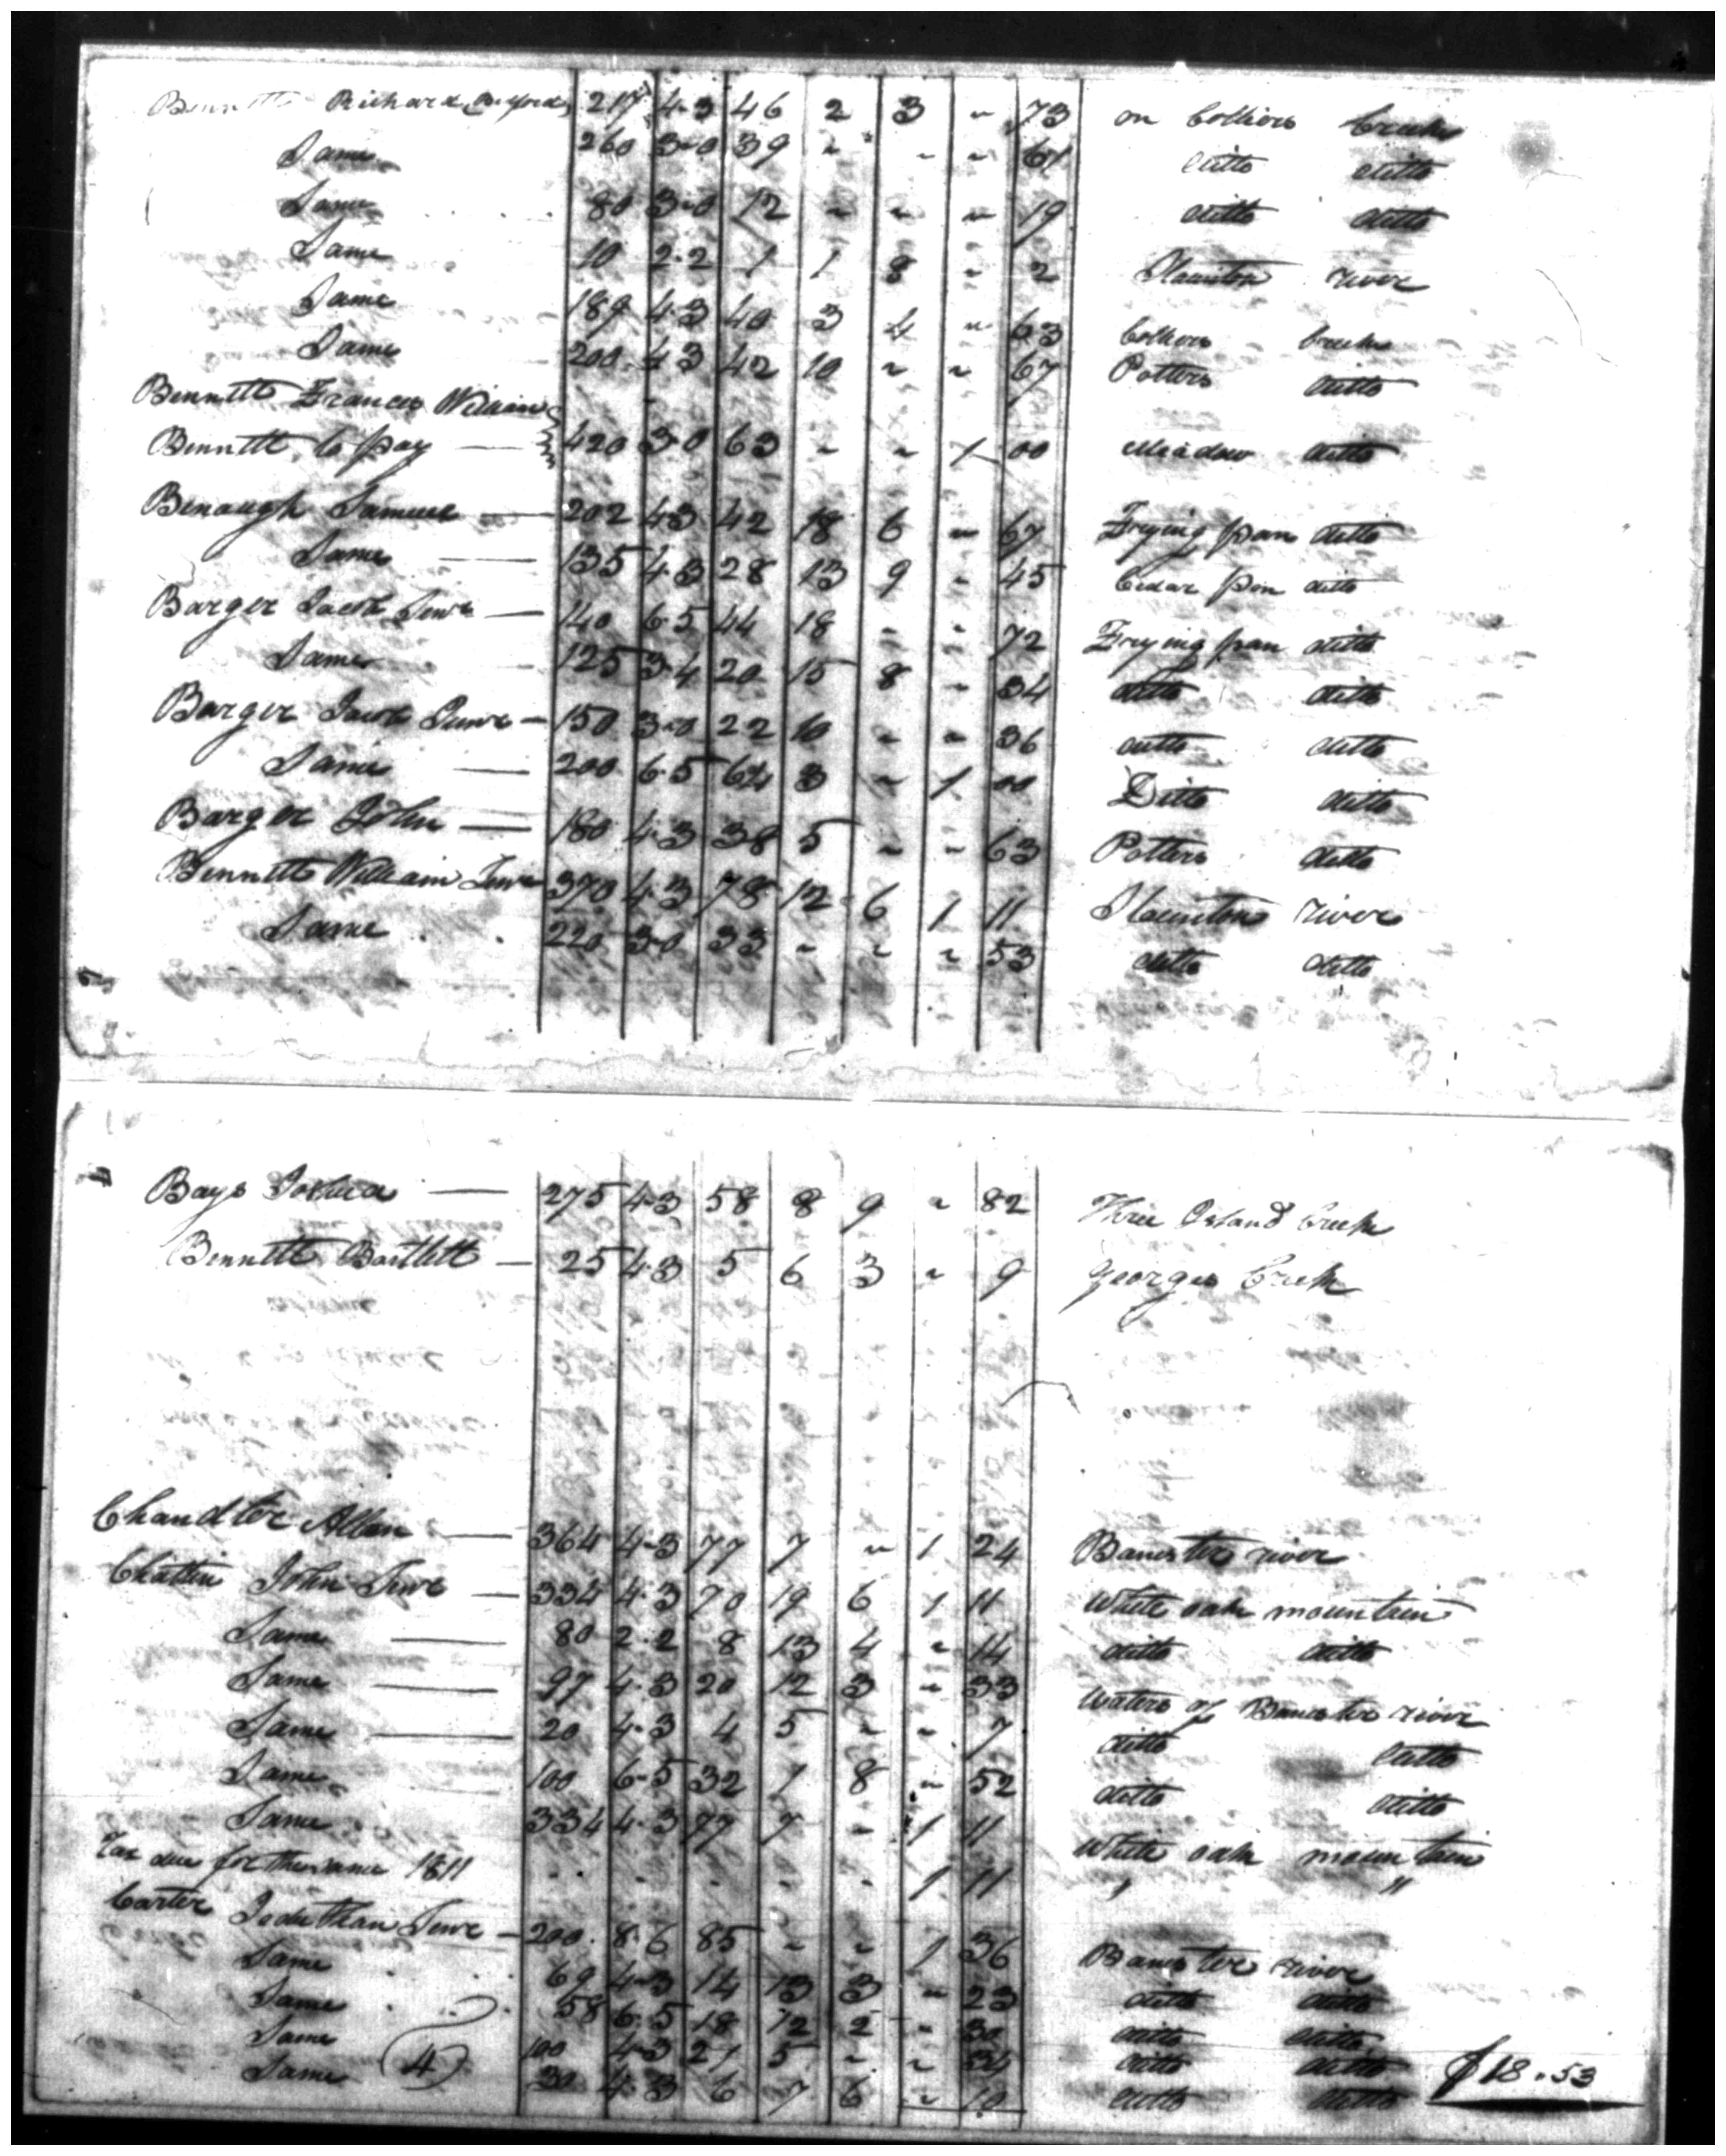 Bennett Richard (Bedford) 217 4-3 46 2 3 " 73 on Colliers Creek
Same 260 3-0 39 " " " 61 ditto ditto
Same 80 3-0 12 " " " 19 ditto ditto
Same 10 2-2 1 1 8 " 2 Staunton river
Same 189 4-3 40 3 4 " 63 Colliers Creek
Same 200 4-3 42 10 " " 67 Potters ditto
Bennett Frances William
Bennett to pay — 420 3-0 63 " " 1 00 Meadow ditto
Benaugh Samuel — 202 4-3 42 18 6 " 67 Frying pan ditto
Same — 135 4-3 28 13 9 " 45 Cedar ditto
Barger Jacob Senr — 140 6-5 44 18 " " 72 Frying pan ditto
Same 125 3-4 20 15 8 " 34 ditto ditto
Barger Jacob Junr — 150 3-0 22 10 " " 36 ditto ditto
Same — 200 6-5 64 3 " 1 00 Ditto ditto
Barger John — 180 4-3 38 5 " " 63 Potters ditto
Bennett William Senr 370 4-3 78 12 6 1 11 Staunton river
Same 220 3-0 33 " " " 53 ditto ditto
Bays Joshua — 275 4-3 58 8 9 " 82 Three Island Creek
Bennett Bartlett — 25 4-3 5 6 3 " 9 Georges Creek
Chandler Allen — 364 4-3 77 7 " 1 24 Banister river
Chattin John Senr — 334 4-3 70 19 6 1 11 White oak mountain
Same — 80 2-2 8 13 4 " 14 ditto ditto
Same — 97 4-3 20 12 3 " 33 Waters of Banister river
Same — 20 4-3 4 5 " " 7 ditto ditto
Same 100 6-5 32 1 8 " 52 ditto ditto
Same 334 4-3 77 7 " 1 11 White oak mountain
Tax due for the same 1811 1 11 " "
Carter Jeduthan Senr — 200 8-6 85 " " 1 36 Banister river
Same 69 4-3 14 13 3 " 23 ditto ditto
Same 58 6-5 18 12 2 " 30 ditto ditto
Same 100 4-3 21 5 " " 34 ditto ditto
Same (4) 30 4-3 6 7 6 " 10 ditto ditto $18.53